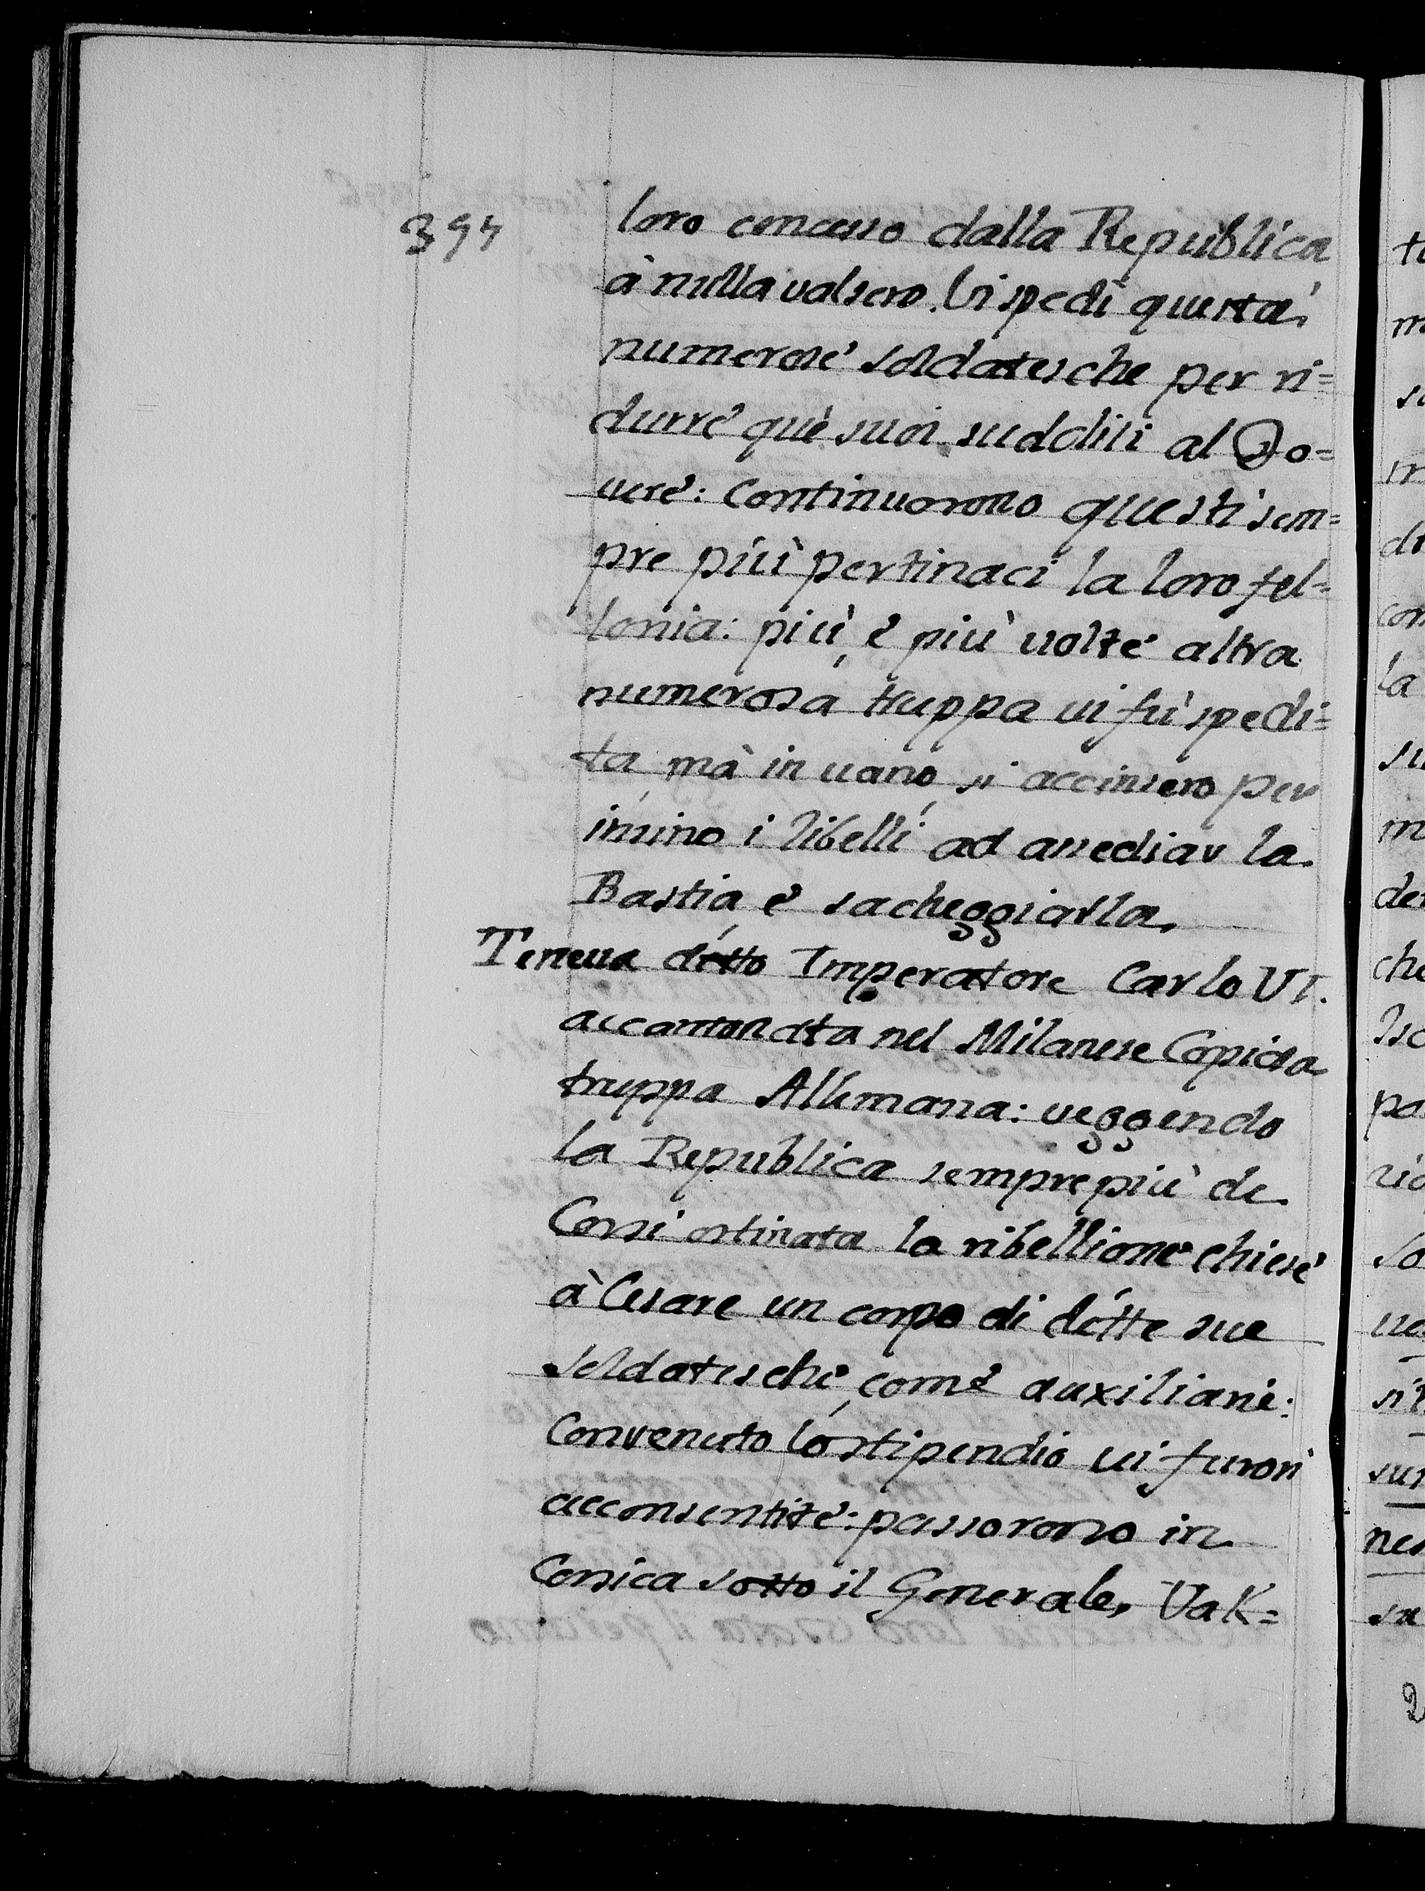 394
loro concesso dalla Republica
à nulla valsero. Vi spedì questa
numerose soldatesche per ri=
durre què suoi sudditi al Do=
uere: Continuorono questi sem=
pre più pertinaci la loro fel=
lonia: più, e più uolte altra
numerosa truppa ui fù spedi=
ta, mà in uano, si accinsero per
insino i libelli ad assediar la
Bastia, e sacheggiarla.
Teneua detto Imperatore Carlo VI.
accantonata nel Milanese Copiosa
truppa Allemana: veggendo
la Republica sempre più de
Corsi ostinata la ribellione chiese
à Cesare un corpo di dette sue
soldatesche, come auxiliarie:
Convenuto lo stipendio ui furon
acconsentite: passorono in
Corsica sotto il Generale, Vak=